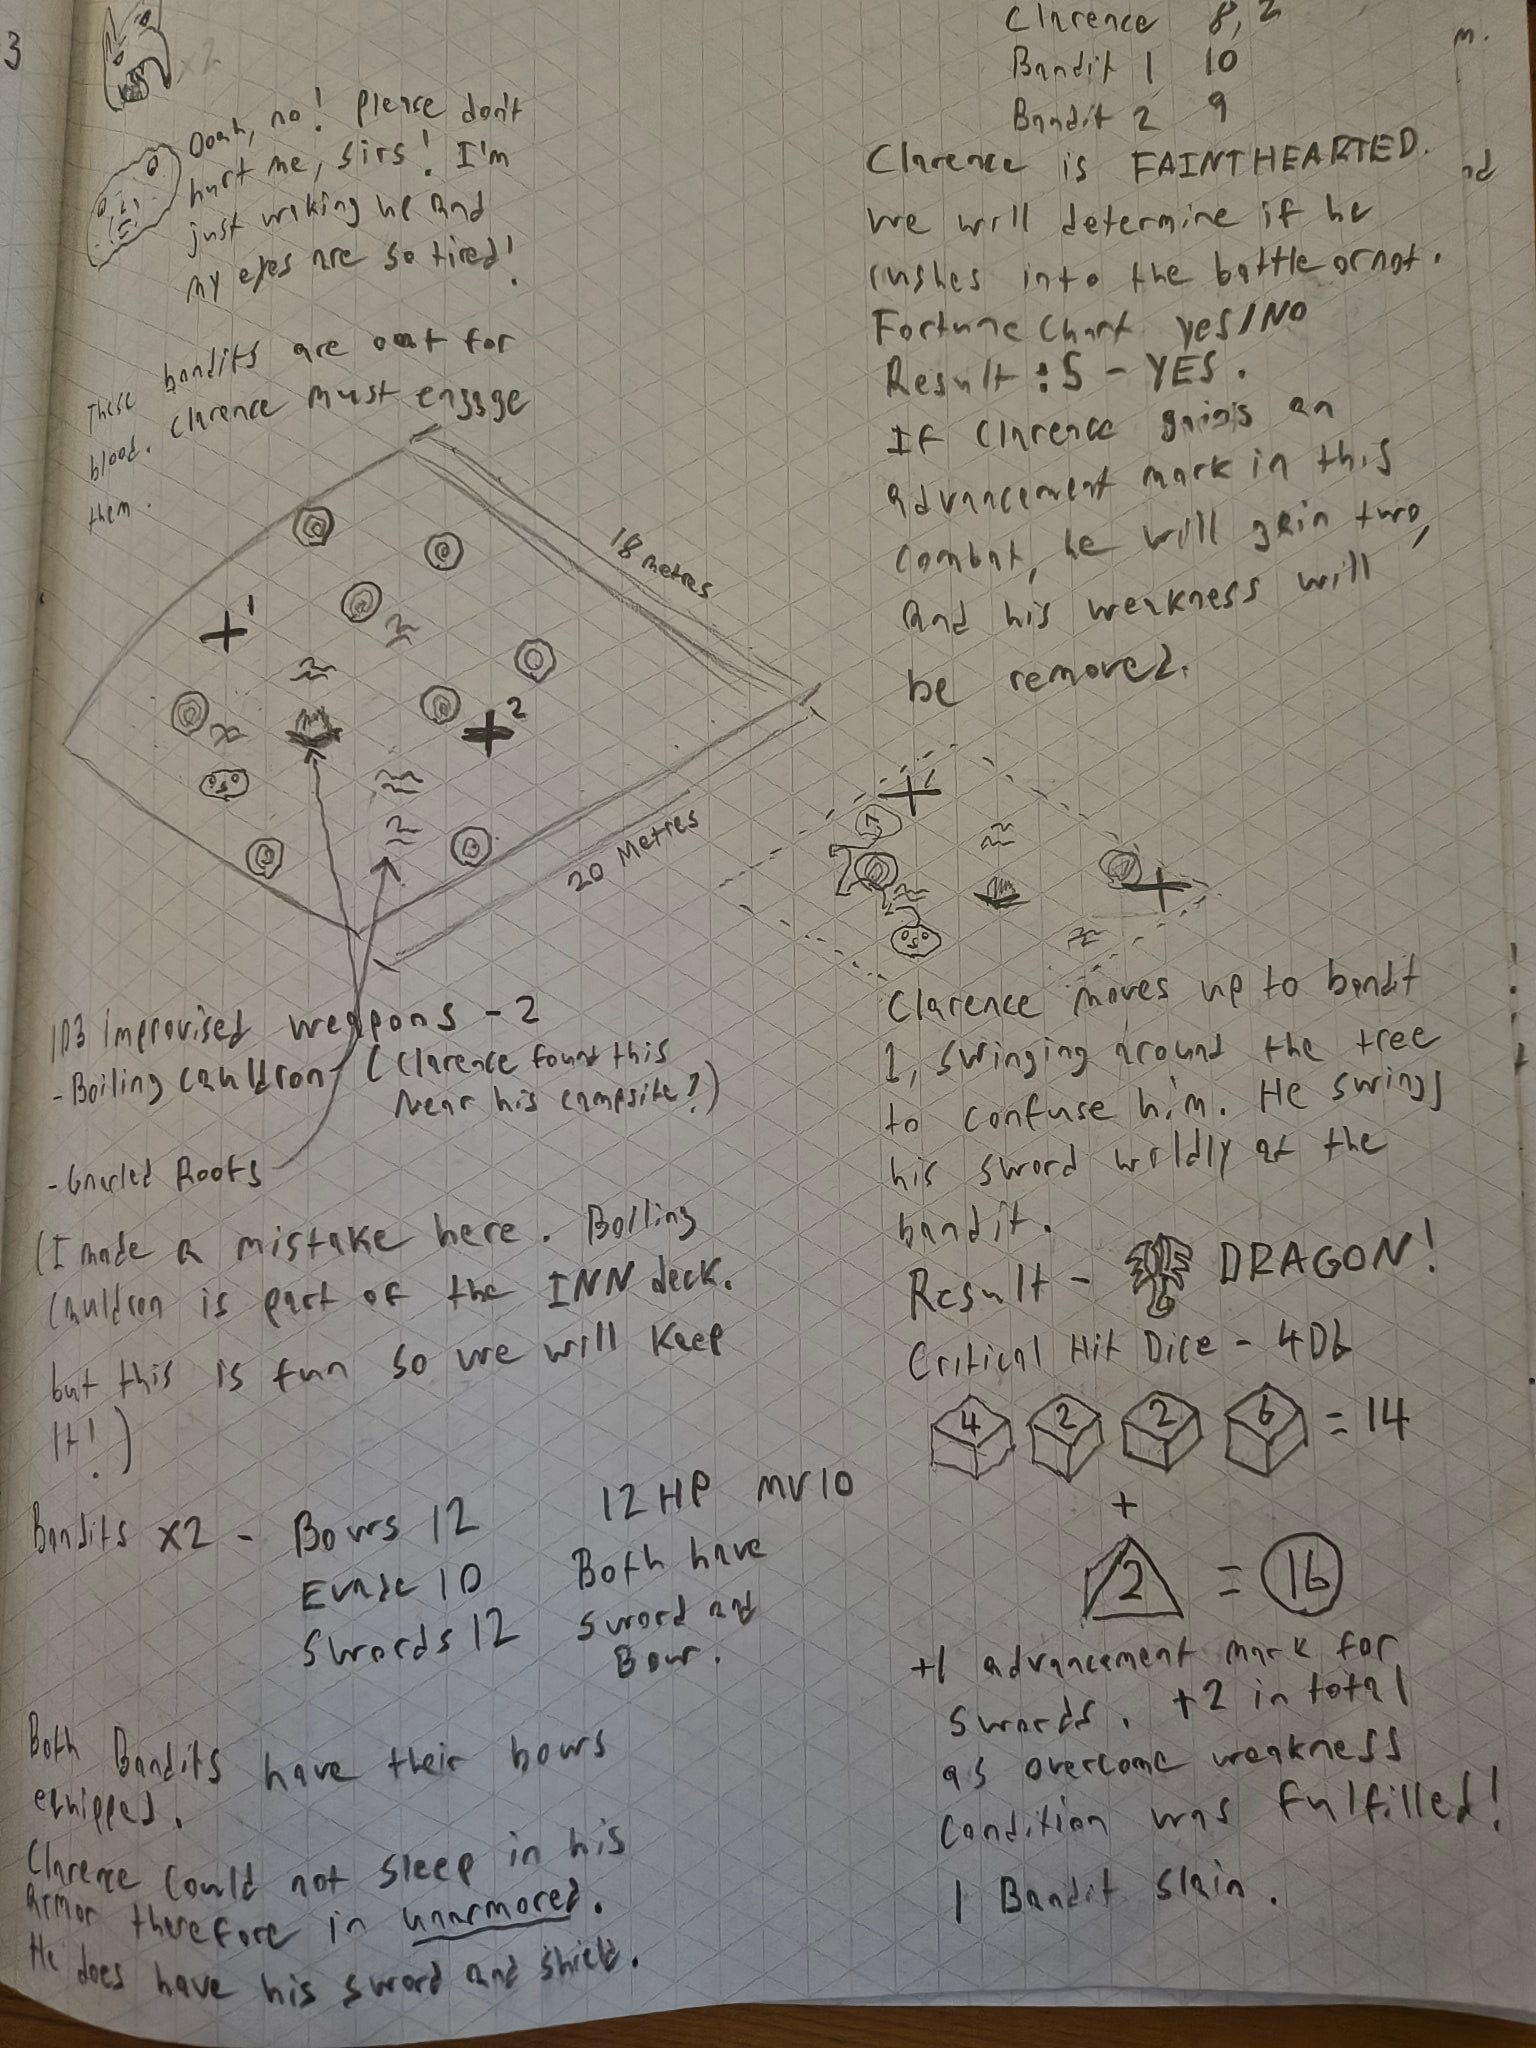 3
x2
Ooah, no! Please don't
hurt me, sirs! I'm
just waking up and
my eyes are so tired!
These bandits are out for
blood. Clarence must engage
them.
18 metres
1
2
20 Metres
1D3 improvised weapons - 2
- Boiling cauldron (Clarence found this
near his campsite?)
- Gnarled Roots
(I made a mistake here. Boiling
Cauldron is part of the INN deck.
but this is fun so we will keep
it!)
Bandits x2 - Bows 12 12 HP MV 10
Evade 10 Both have
Swords 12 sword and
Bow.
Both Bandits have their bows
equipped.
Clarence could not sleep in his
armor therefore in unarmored.
He does have his sword and shield.
Clarence 8, 2
Bandit 1 10
Bandit 2 9
Clarence is FAINTHEARTED.
We will determine if he
rushes into the battle or not.
Fortune Chart yes/NO
Result: 5 - YES.
If Clarence gains an
advancement mark in this
combat, he will gain two,
and his weakness will
be removed.
1
Clarence moves up to bandit
1, swinging around the tree
to confuse him. He swings
his sword wildly at the
bandit.
Result - DRAGON!
Critical Hit Dice - 4D6
4 2 2 6 = 14
+
2 = 16
+1 advancement mark for
swords. +2 in total
as overcome weakness
condition was fulfilled!
1 Bandit slain.
m.
nd